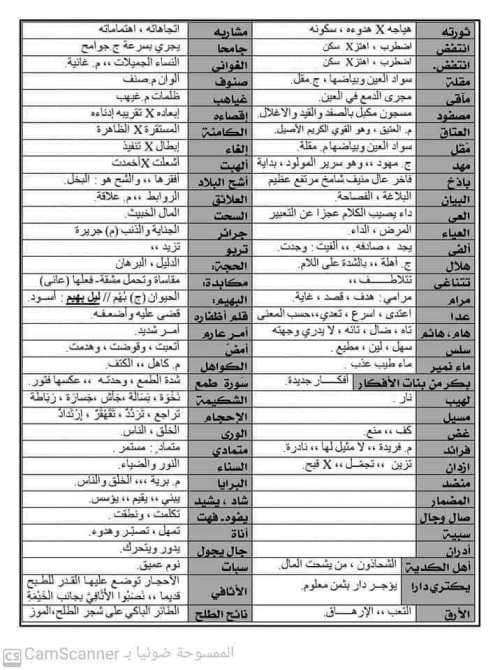 ثورته هياجه X هدوءه ، سكونه مشاربه اتجاهاته ، اهتماماته
انتفض اضطرب ، اهتز X سكن جامحا يجري بسرعة ج.جوامح
انتفض. اضطرب ، اهتز X سكن الغواني النساء الجميلات ،، م. غانية.
مقلة سواد العين وبياضها ، ج.مقل. صنوف ألوان م.صنف
مآقي مجرى الدمع في العين. غياهب ظلمات م.غيهب
مصفود مسجون مكبل بالصفد والقيد والاغلال. إقصاءه إبعاده X تقريبه إدناءه
العتاق م. العتيق ، وهو القوي الكريم الأصيل. الكامنة المستقرة X الظاهرة
مُقل سواد العين وبياضها م. مقلة. الغاء إبطال X تنفيذ
مهد ج. مهود ،، وهو سرير المولود ، بداية ألهبت أشعلت X أخمدت
باذخ فاخر عال منيف شامخ مرتفع عظيم أشح البلاد أفقرها ،، والشح هو : البخل.
البيان البلاغة ، الفصاحة. العلائق الروابط ،، م. علاقة.
العي داء يصيب الكلام عجزا عن التعبير السحت المال الخبيث.
العياء المرض ، الداء. جرائر الجناية والذنب (م) جريرة
ألفى يجد ، صادفه. ،، ألفيت : وجدت. تربو تزيد ،،
هلال ج. أهلة ،، بالشدة على اللام. الحجة: الدليل ، البرهان
تتناغى تتلاطف ،، مكابدة: مقاساة وتحمل مشقة- فعلها (عانى)
مرام مرامي: هدف ، قصد ، غاية. البهيم: الحيوان (ج) بُهُم // ليل بهيم : أسود.
عدا اعتدى ، اسرع ، تعدي،،حسب المعنى قلم أظفاره قضى عليه وأضعفه.
هام، هائم تاه ، ضال ، تائه ، لا يدري وجهته أمر عارم أمر شديد.
سلس سهل ، لين ، مطيع . أمضّ أتعبت ، وقوضت ، وهدمت.
ماء نمير ماء طيب عذب . الكواهل م. كاهل ،، الكتف.
بكر من بنات الأفكار أفكار جديدة. سورة طمع شدة الطمع ، وحدته ،، عكسها فتور.
لهيب نار . الشكيمة نَخْوَة ، بَسَالَة ،جَأش ،جَسارَة ، رَبَاطَة
مسيل الإحجام تراجع ، تَرَدُّدٌ ، تَقَهْقُرٌ ، إِرْتِدادٌ
غض كف ،، منع. الورى الخلق ، الناس.
فرائد م. فريدة ،، لا مثيل لها ،، نادرة. متمادي متماد. : مستمر .
ازدان تزين ،، تجمّل ،، X قبح. السناء النور والضياء.
منضد البرايا م. برية ،،، الخلق والناس.
المضمار شاد ، يشيد يبني ،، يقيم ،، يؤسس.
صال وجال يفوه- فهت تكلمت ، ونطقت .
سبية أناة تمهل ، تصبّر وهدوء.
أدران جال يجول يدور ويتحرك.
أهل الكدية الشحاذون ، من يشحت المال. سبات نوم عميق.
يكتري دارا يؤجر دار بثمن معلوم. الأثافي الأحجار توضع عليها القدر للطبخ
قديما ،، نَصَبُوا الأَثَافِيَّ بِجانب الخَيْمَةِ
الأرق التعب ،، الإرهاق. نائح الطلح الطائر الباكي على شجر الطلح،الموز
الممسوحة ضوئيا بـ CamScanner
CS